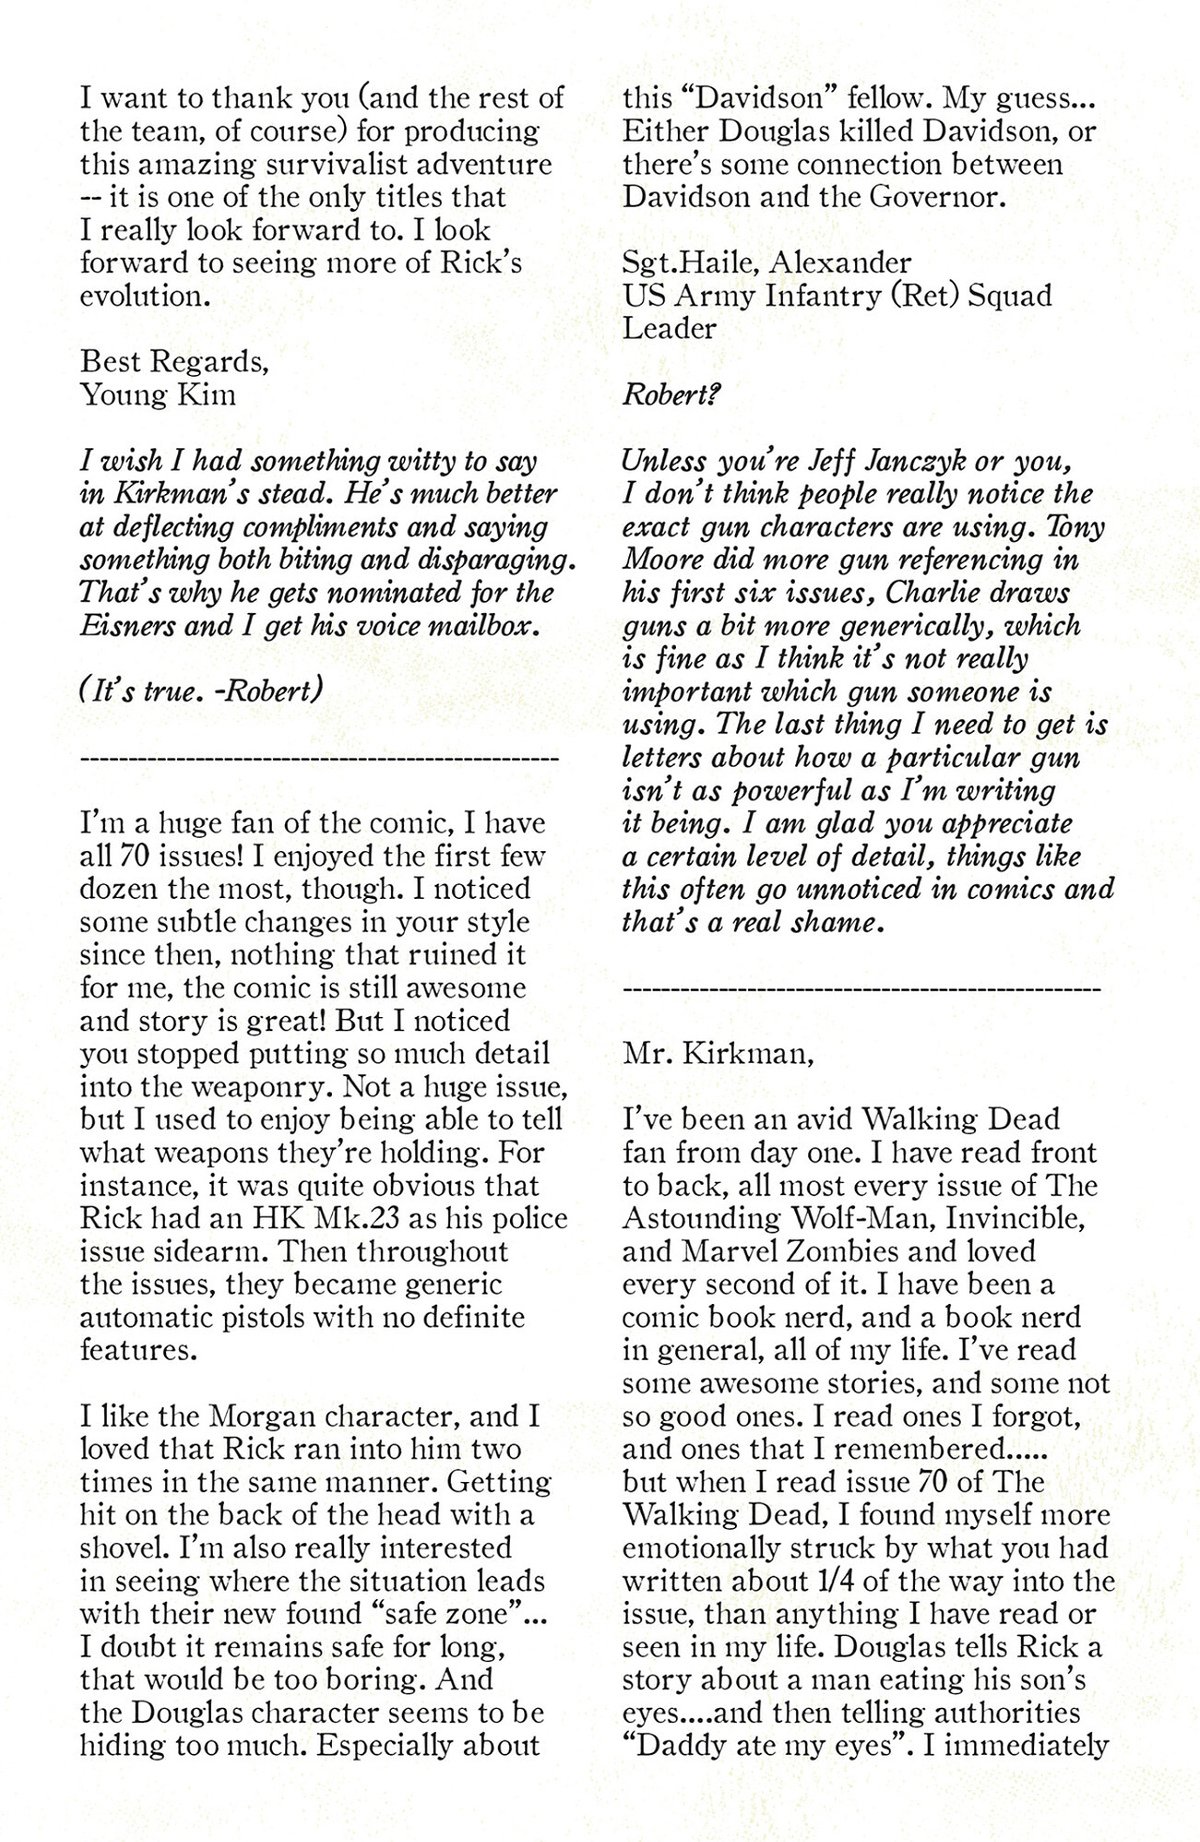 I want to thank you (and the rest of
the team, of course) for producing
this amazing survivalist adventure
-- it is one of the only titles that
I really look forward to. I look
forward to seeing more of Rick's
evolution.
Best Regards,
Young Kim
I wish I had something witty to say
in Kirkman's stead. He's much better
at deflecting compliments and saying
something both biting and disparaging.
That's why he gets nominated for the
Eisners and I get his voice mailbox.
(It's true. -Robert)
--------------------------------------------------
I'm a huge fan of the comic, I have
all 70 issues! I enjoyed the first few
dozen the most, though. I noticed
some subtle changes in your style
since then, nothing that ruined it
for me, the comic is still awesome
and story is great! But I noticed
you stopped putting so much detail
into the weaponry. Not a huge issue,
but I used to enjoy being able to tell
what weapons they're holding. For
instance, it was quite obvious that
Rick had an HK Mk.23 as his police
issue sidearm. Then throughout
the issues, they became generic
automatic pistols with no definite
features.
I like the Morgan character, and I
loved that Rick ran into him two
times in the same manner. Getting
hit on the back of the head with a
shovel. I'm also really interested
in seeing where the situation leads
with their new found “safe zone”...
I doubt it remains safe for long,
that would be too boring. And
the Douglas character seems to be
hiding too much. Especially about
this “Davidson” fellow. My guess...
Either Douglas killed Davidson, or
there's some connection between
Davidson and the Governor.
Sgt.Haile, Alexander
US Army Infantry (Ret) Squad
Leader
Robert?
Unless you're Jeff Janczyk or you,
I don't think people really notice the
exact gun characters are using. Tony
Moore did more gun referencing in
his first six issues, Charlie draws
guns a bit more generically, which
is fine as I think it's not really
important which gun someone is
using. The last thing I need to get is
letters about how a particular gun
isn't as powerful as I'm writing
it being. I am glad you appreciate
a certain level of detail, things like
this often go unnoticed in comics and
that's a real shame.
--------------------------------------------------
Mr. Kirkman,
I've been an avid Walking Dead
fan from day one. I have read front
to back, all most every issue of The
Astounding Wolf-Man, Invincible,
and Marvel Zombies and loved
every second of it. I have been a
comic book nerd, and a book nerd
in general, all of my life. I've read
some awesome stories, and some not
so good ones. I read ones I forgot,
and ones that I remembered.....
but when I read issue 70 of The
Walking Dead, I found myself more
emotionally struck by what you had
written about 1/4 of the way into the
issue, than anything I have read or
seen in my life. Douglas tells Rick a
story about a man eating his son's
eyes....and then telling authorities
“Daddy ate my eyes”. I immediately